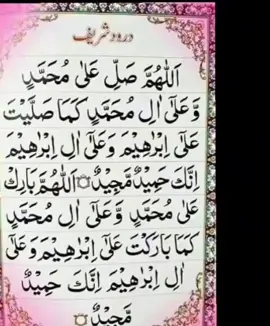 درود شریف
اَللّٰهُمَّ صَلِّ عَلٰی مُحَمَّدٍ
وَّعَلٰٓی اٰلِ مُحَمَّدٍ کَمَا صَلَّیْتَ
عَلٰٓی اِبْرٰهِیْمَ وَعَلٰٓی اٰلِ اِبْرٰهِیْمَ
اِنَّكَ حَمِیْدٌ مَّجِیْدٌ۝ اَللّٰهُمَّ بَارِكْ
عَلٰی مُحَمَّدٍ وَّعَلٰٓی اٰلِ مُحَمَّدٍ
کَمَا بَارَکْتَ عَلٰٓی اِبْرٰهِیْمَ وَعَلٰٓی
اٰلِ اِبْرٰهِیْمَ اِنَّكَ حَمِیْدٌ
مَّجِیْدٌ۝